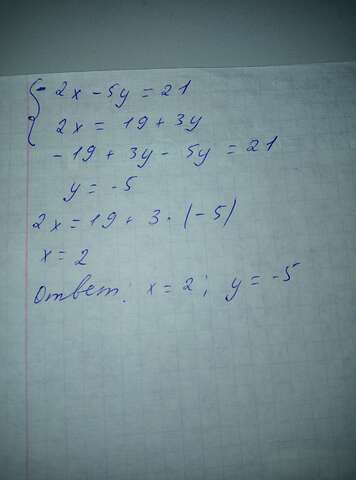 { - 2x - 5y = 21
2x = 19 + 3y
- 19 + 3y - 5y = 21
y = -5
2x = 19 + 3 · (-5)
x = 2
Ответ: x = 2; y = -5